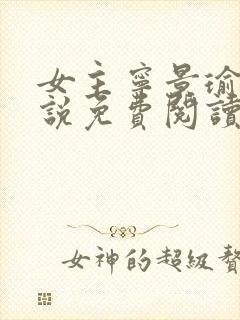 女主寧景瑜
說免費閱讀
女神的超級贅